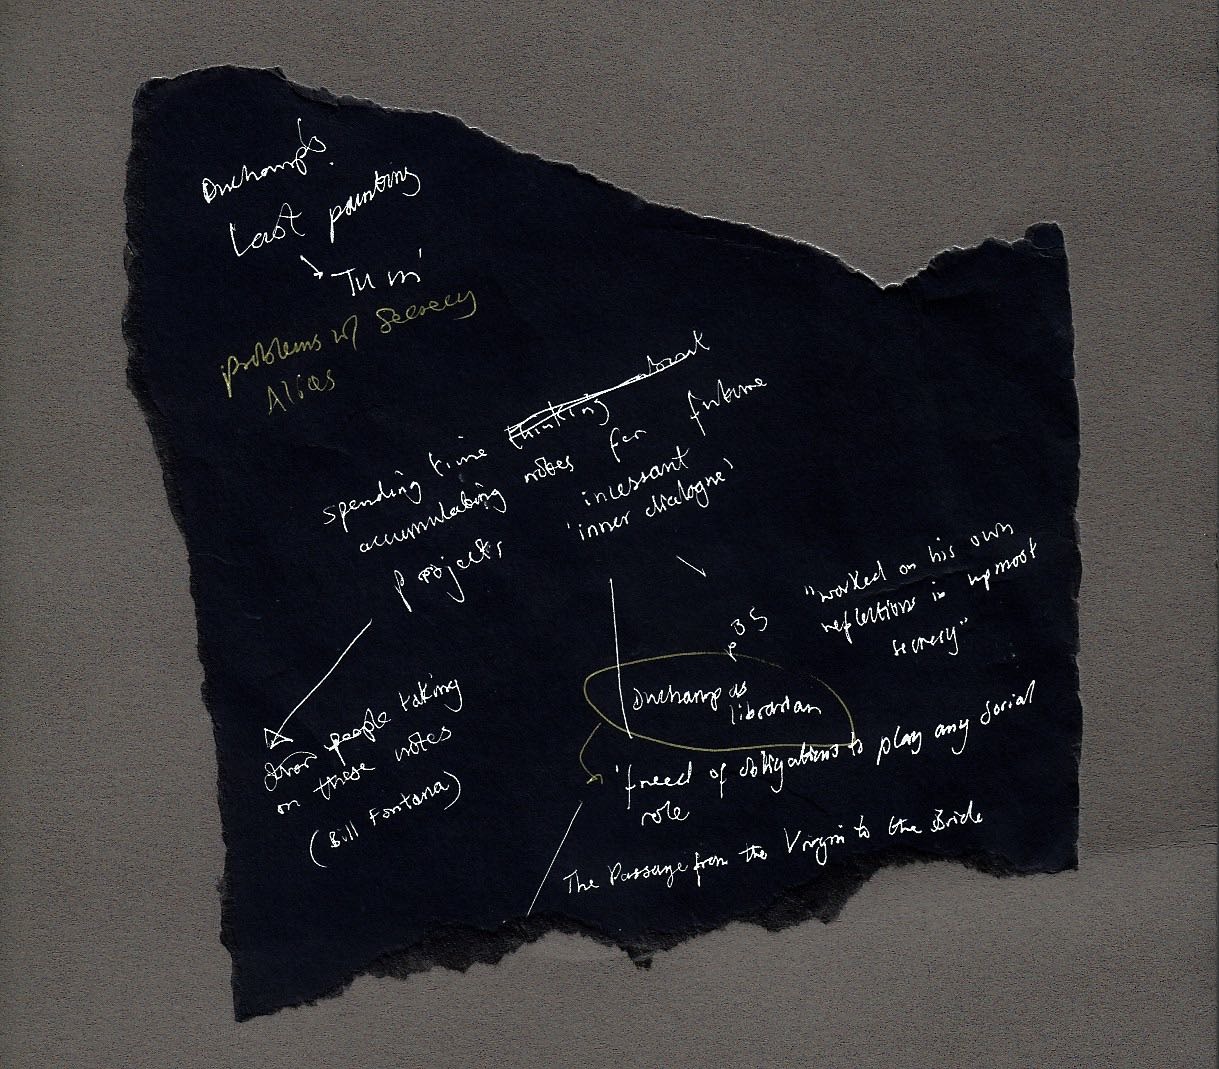 Duchamp's
Last painting
Tu m'
problems w/ Secrecy
Alias
spending time thinking about
accumulating notes for future
projects
incessant
'inner dialogue'
"worked on his own
reflections in upmost
secresy"
p35
Duchamp as
librarian
people taking
on these notes
(Bill Fontana)
'freed of obligations to play any social
role
The Passage from the Virgin to the Bride